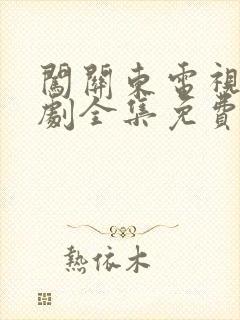 闖關東電視
劇全集免費
熱依木